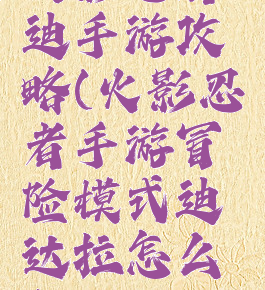 迪手游攻
略(火影忍
者手游冒
险模式迪
达拉怎么